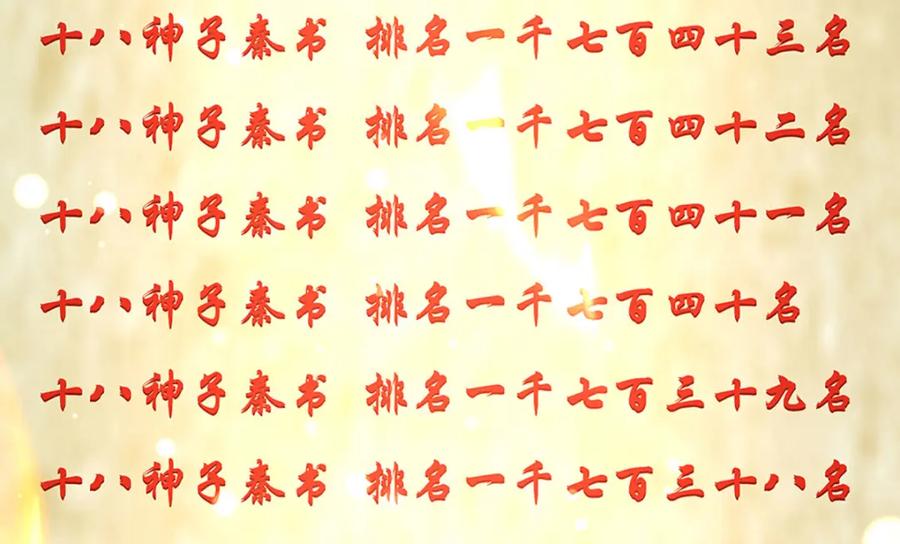 十八神子秦书 排名一千七百四十三名
十八神子秦书 排名一千七百四十二名
十八神子秦书 排名一千七百四十一名
十八神子秦书 排名一千七百四十名
十八神子秦书 排名一千七百三十九名
十八神子秦书 排名一千七百三十八名